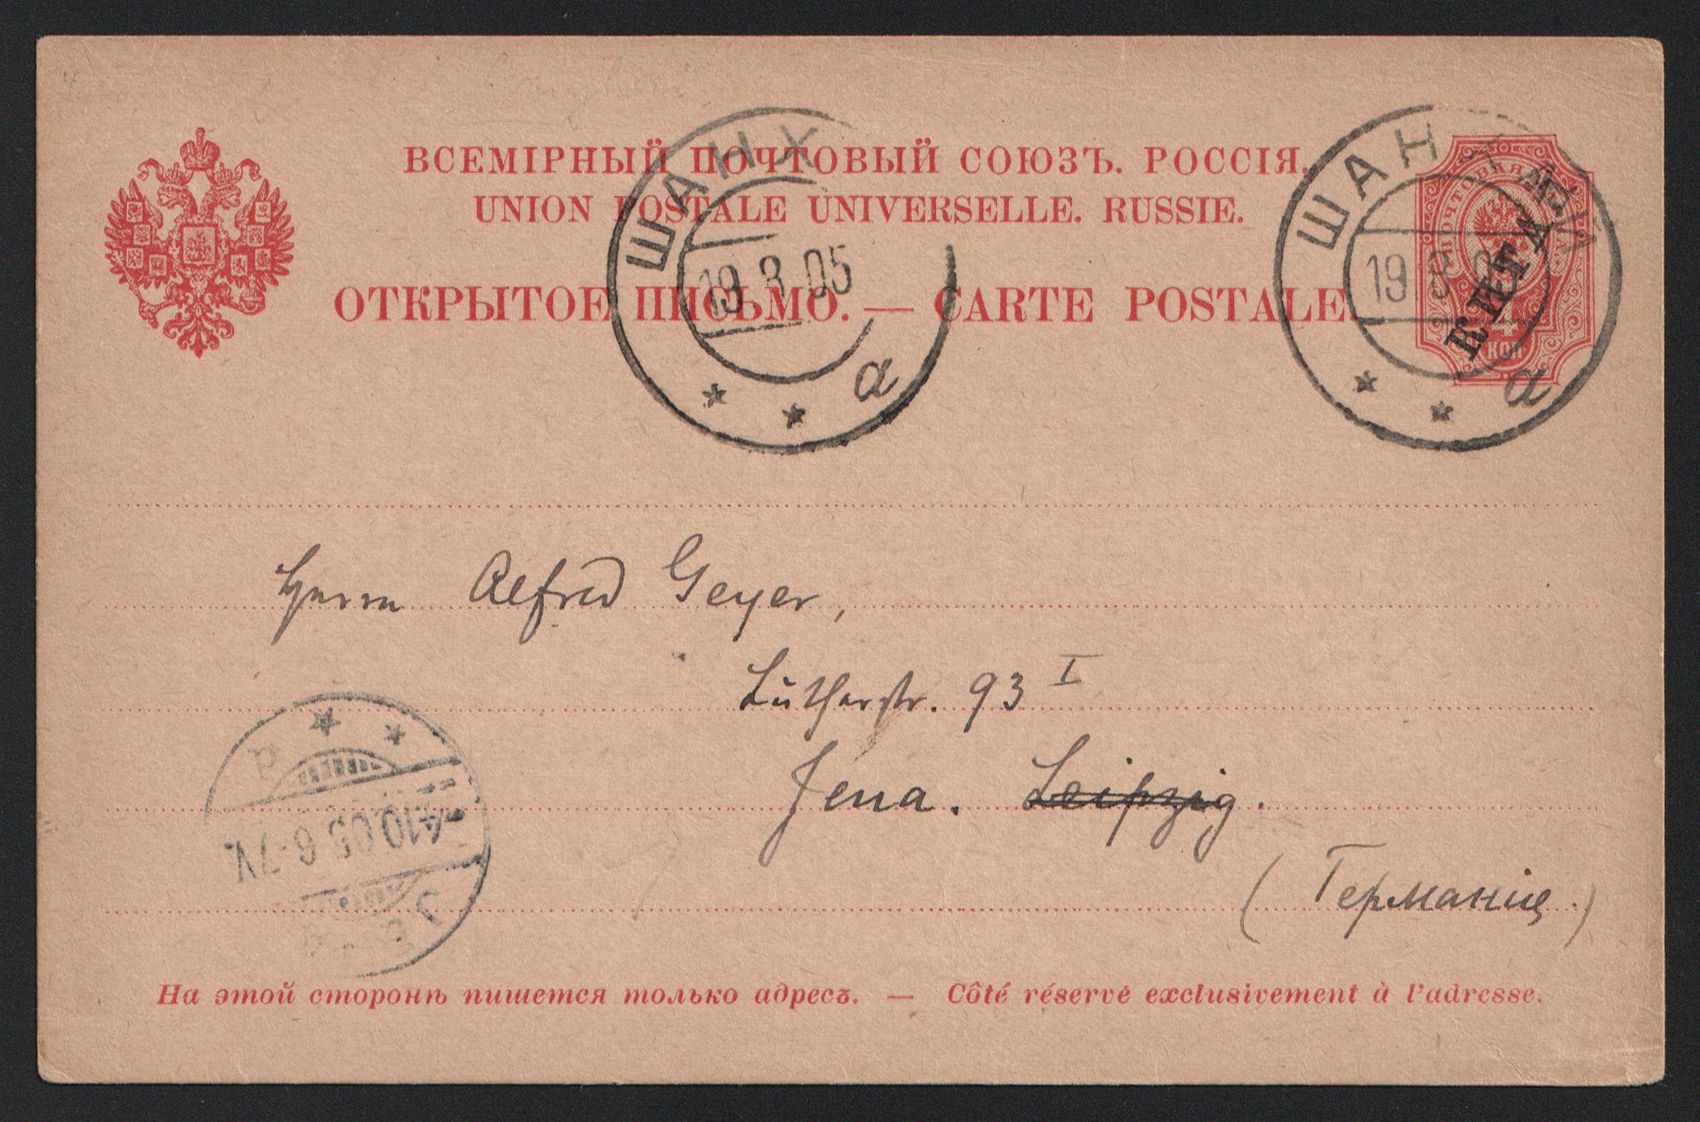 ВСЕМІРНЫЙ ПОЧТОВЫЙ СОЮЗЪ. РОССІЯ.
UNION POSTALE UNIVERSELLE. RUSSIE.
ОТКРЫТОЕ ПИСЬМО. — CARTE POSTALE.
ШАНХ
19 8 05
* * а
ШАНХАЙ
19 8 0
* * а
ПОЧТОВАЯ
КИТАЙ
4
КОП
Herrn Alfred Geyer,
Lutherstr. 93 I
Jena. Leipzig.
(Германія.)
a * *
4.10.05 6-7V.
JE
На этой сторонѣ пишется только адресъ. — Côté réservé exclusivement à l'adresse.